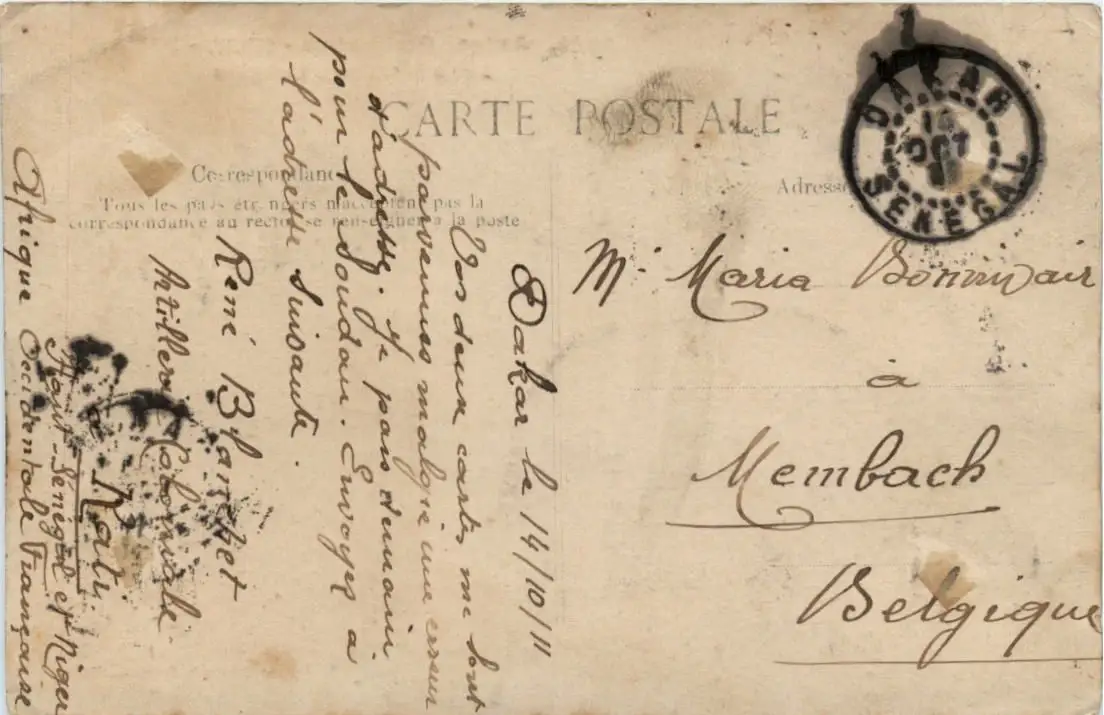 CARTE POSTALE
Correspondance
Tous les pays étrangers n'acceptent pas la
correspondance au recto, se renseigner à la poste
Adresse
DAKAR
OCT
SENEGAL
Dakar le 14/10/11
Vos deux cartes me sont
parvenues malgré une erreur
d'adresse. Je pars demain
pour le Soudan. Envoyez à
l'adresse suivante.
René Blanchet
Artillerie Coloniale.
Kati
Haut-Sénégal et Niger
Afrique Occidentale Française
M. Maria
à
Membach
Belgique